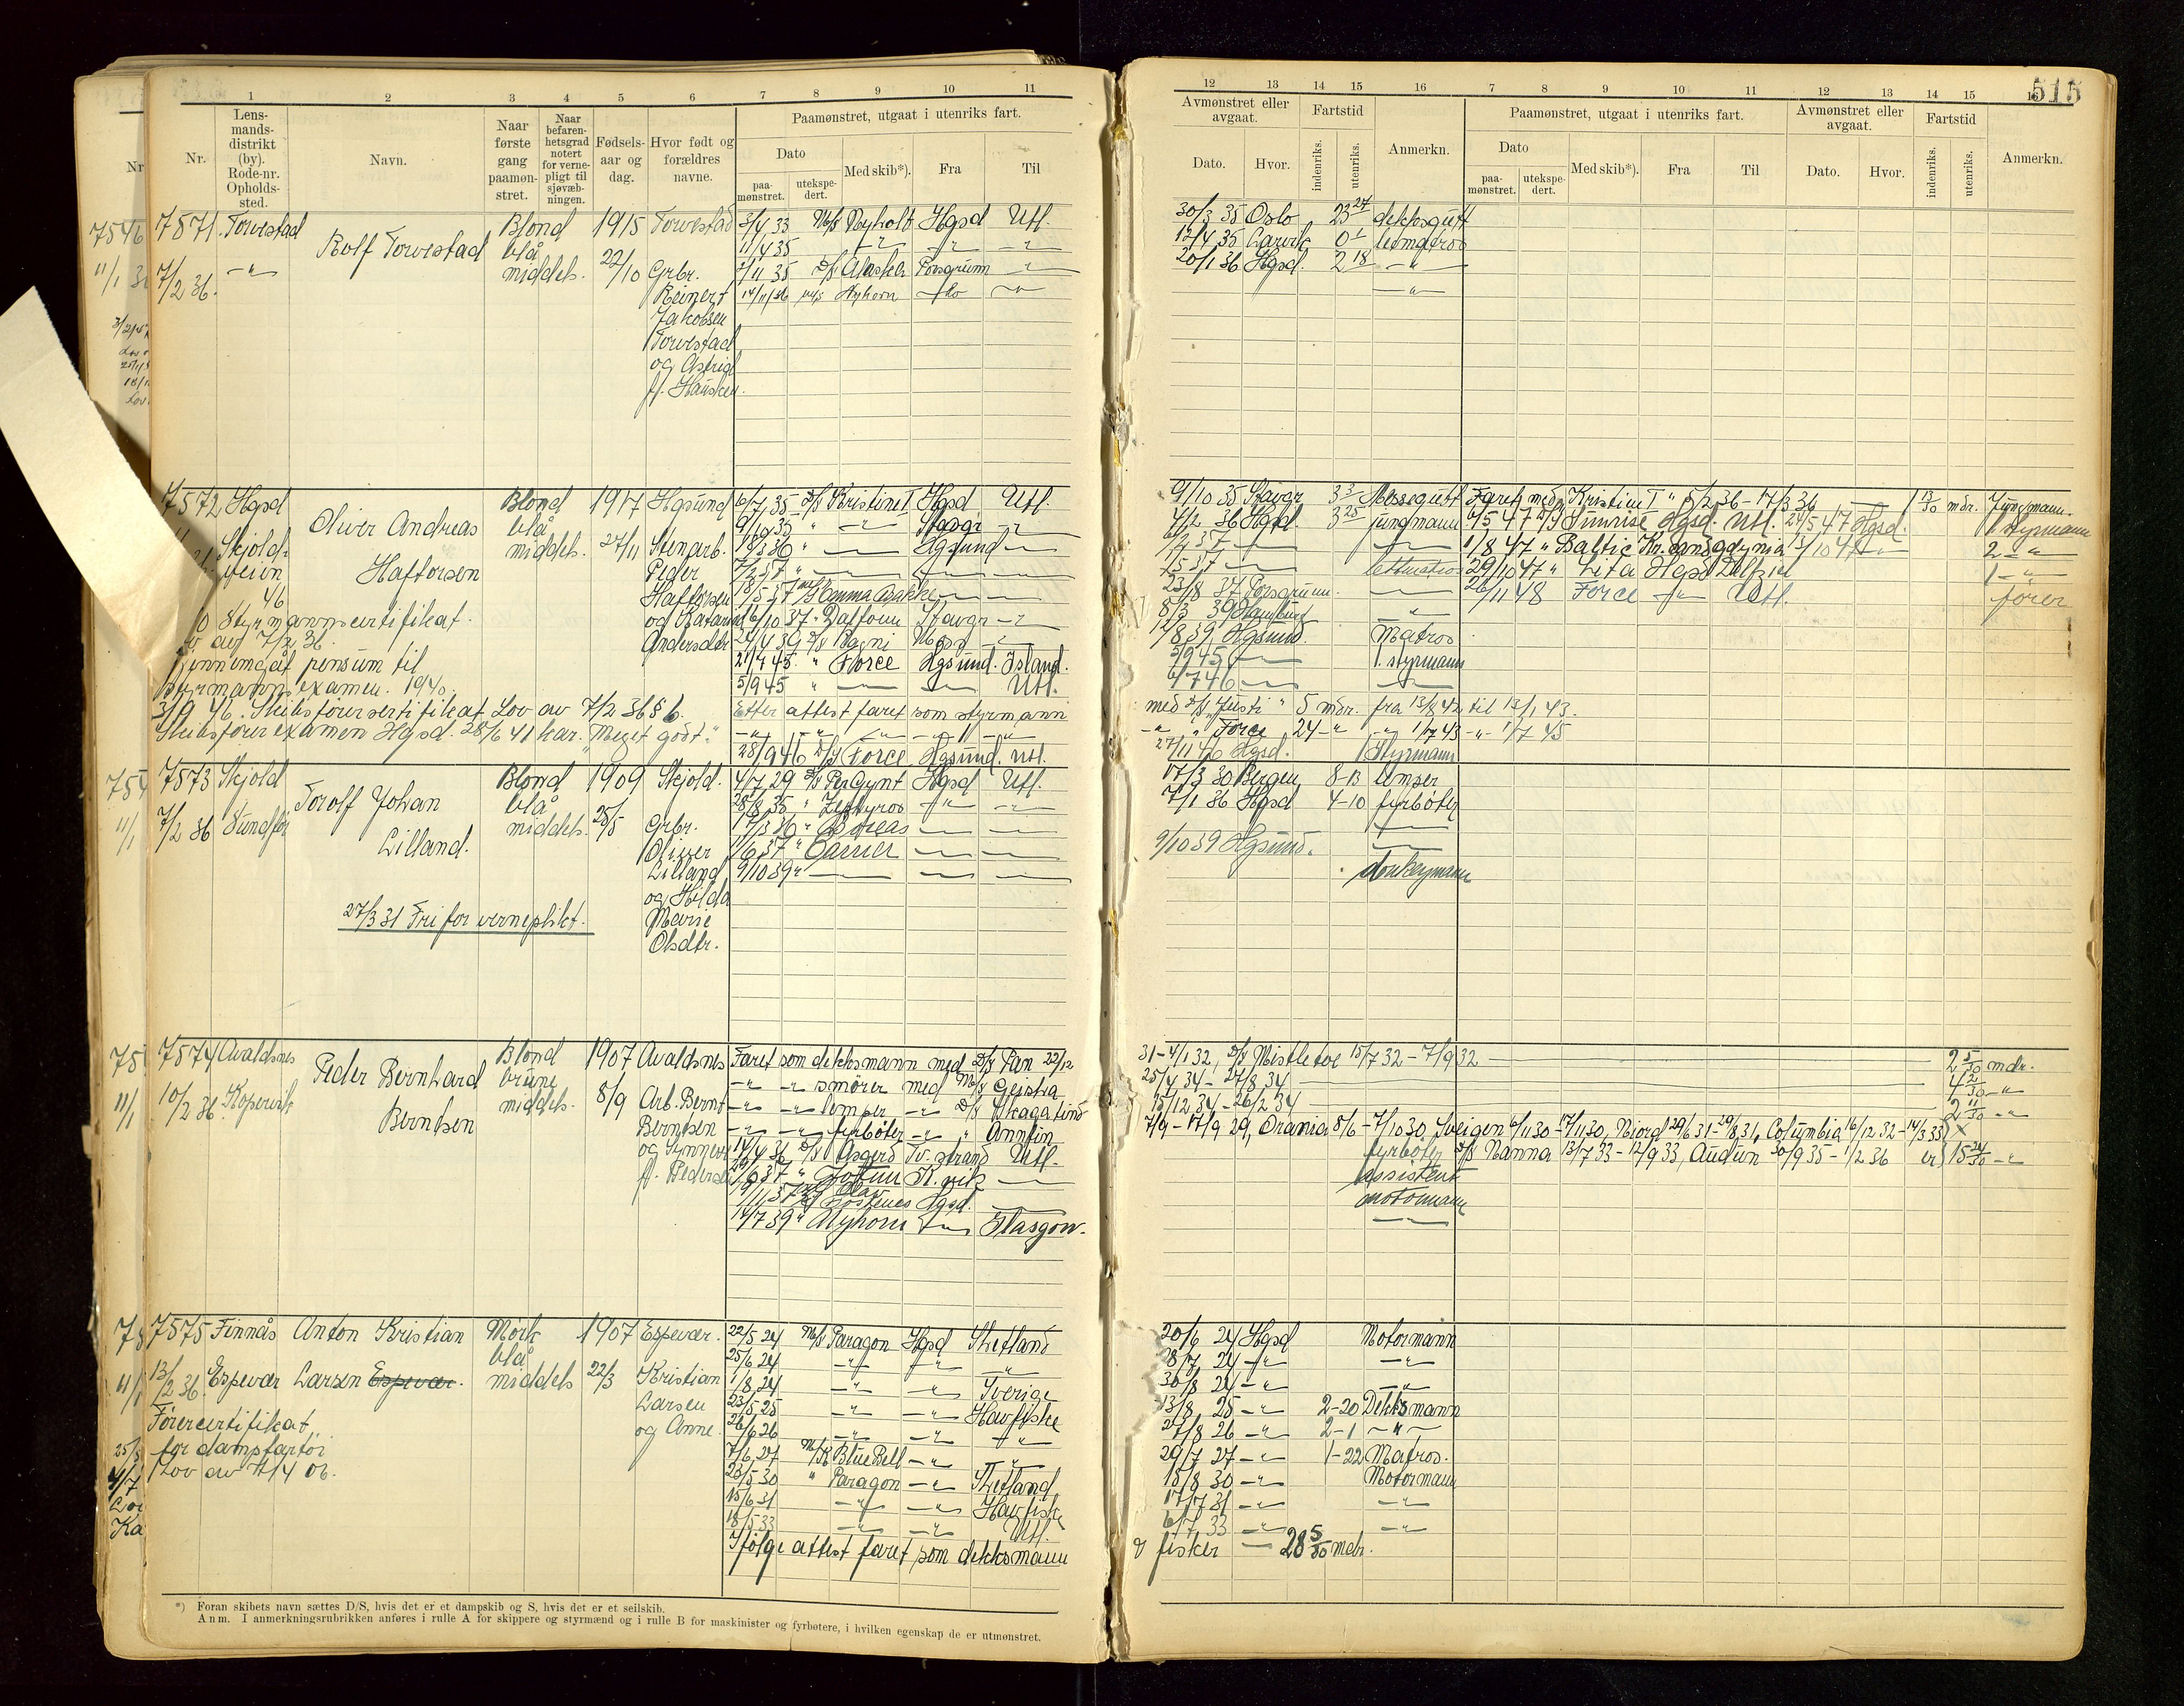 515
1 2 3 4 5 6 7 8 9 10 11
Nr.
Lens-
mands-
distrikt
(by).
Rode-nr.
Opholds-
sted.
Navn.
Naar
første
gang
paamøn-
stret.
Naar
befaren-
hetsgrad
notert
for verne-
pligt til
sjøvæb-
ningen.
Fødsels-
aar og
dag.
Hvor født og
forældres
navne.
Paamønstret, utgaat i utenriks fart.
Dato
paa-
mønstret.
utekspe-
dert.
Med skib*).
Fra
Til
12 13 14 15 16 7 8 9 10 11 12 13 14 15
Avmønstret eller
avgaat.
Dato.
Hvor.
Fartstid
indenriks.
utenriks.
Anmerkn.
Paamønstret, utgaat i utenriks fart.
Dato
paa-
mønstret.
utekspe-
dert.
Med skib*).
Fra
Til
Avmønstret eller
avgaat.
Dato.
Hvor.
Fartstid
indenriks.
utenriks.
Anmerkn.
7571. Torvestad Rolf Torvestad Blond 1915 Torvestad
7/2 36. -"- blå 22/10 Grbr.
middels.
Reinert
Jakobsen
Torvestad
og Astrid
f. Hausken.
3/4 33 M/S Nyholt Hgsd Utl. 30/3 35 Oslo 23 27 dekksgutt
11/4 35 -"- -"- -"- 12/4 35 Larvik 0 1 letmatros
7/11 35 D/S Alaska Porsgrunn -"- 20/1 36 Hgsd. 2 18 -"-
14/11/36 M/S Nyhorn -"-
7572 Hgsd Oliver Andreas Blond 1917 Hgsund
Skjold- Haftorsen blå 27/11 Stenarb.
veien middels. Peder
46 Haftorsen
Styrmannscertifikat. og Katarina
av 7/2 36. Andersdtr
Gjennemgåt pensum til
styrmannsexamen. 1940.
3/9 46. Skibsførersertifikat Lov av 7/2 36 § 6.
Skibsførerexamen Hgsd. 28/6 41 kar. "Meget godt."
6/7 35 D/S Kristine I Hgsd Utl. 9/10 35 Stavgr 3 3 Messegutt
9/10 35 " -"- Stavgr -"- 4/2 36 Hgsd 3 25 jungmann
Hgsund
M/S Hamma Bakke 23/8 37 Porsgrunn.
16/10 37 " Dalfonn Stavgr -"- 8/3 39 Hamburg
24/4 39 D/S Ragni Moss -"- 17/8 39 Hgsund. Matros
21/4 45. " Force Hgsund. Island. 5/9 45 1. styrmann
5/9 45 " Utl. 6/7 46
Etter attest faret som styrmann med D/S "Justi" 5 mdr. fra 13/8 42 til 13/1 43.
-"- "Force 24 -"- -"- 1/7 43 -"- 1/7 45
28/9 46 D/S Force Hgsund. Utl. 27/11 46 Hgsd. 1 Styrmann
Faret med "Kristine I" 5/2 36 - 17/3 36 1 13/30 mdr. Jungmann.
4/5 47 D/S Sunrise Hgsd. Utl. 24/5 47 Hgsd. 1 styrmann
1/8 47 " Baltic Kr.sand Gdynia 13/10 47 2 -"-
29/10 47 " Lita Hgsd 1 -"-
26/11 48 Force -"- Utl. fører
7573 Skjold Torolf Johan Blond 1909 Skjold.
7/2 36 Sundfør Lilland. blå 28/5 Grbr.
middels. Oliver
Lilland
og Hilda
Marie
Olsdtr.
27/3 31 Fri for verneplikt.
4/7 29 D/S Per Gynt Hgsd Utl. 17/3 30 Bergen 8-13 lemper
28/8 35 " Zephyros -"- -"- 7/1 36 Hgsd 4-10 fyrbøter
17/3 36 " Boreas
1/6 37 " Carrier 9/10 39 Hgsund.
9/10 39 " donkeymann
7574 Avaldsnes Peder Bernhard Blond 1907 Avaldsnes
10/2 36. Kopervik Berntsen brune 8/9 Arb. Bernt
middels. Berntsen
og Synnøve
f. Pederse
Faret som dekksmann med D/S Pan 22/12 31 - 4/1 32, D/S Mistletoe 15/7 32 - 7/9 32 2 5/30 mdr.
-"- -"- smører med M/S Geisha 25/4 34 - 27/8 34 4 2/30 -"-
-"- -"- lemper -"- D/S Skagatind 15/12 34 - 26/2 34 2 11/30 -"-
-"- -"- fyrbøter -"- " Annfin 7/9 - 17/9 29, Orania 8/6 - 7/10 30, Sveigen 6/11 30 - 17/11 30, Njord 29/6 31 - 29/8 31, Columbia 16/12 32 - 14/3 33
14/4 36 D/S Asgerd Tv.strand Utl. fyrbøter D/S Nanna 13/7 33 - 12/9 33, Audun 30/9 35 - 1/2 36 15 24/30 -"-
29/6 37 " Jotun K.vik assistent
Hgsd. motormann
14/7 39 " Nyhorn -"- Glasgow.
7575 Finnås Anton Kristian Mørk 1907 Espevær.
13/2 36. Espevær Larsen Espevær. blå 22/3 Kristian
middels Larsen
og Anne.
Førercertifikat
for dampfartøi
Lov av 17/4 06.
22/5 24 M/S Paragon Hgsd Shetland 20/6 24 Hgsd Motormann
25/6 24 -"- -"- -"- 28/7 24 -"- -"-
1/8 24 -"- -"- Sverige 30/8 24 -"- -"-
23/5 25 -"- -"- Havfiske 13/8 25 -"- 2-20 Dekksmann
26/6 26 -"- -"- -"- 27/8 26 -"- 2-1 -"-
7/6 27 M/K Blue Bell -"- -"- 29/7 27 -"- 1-22 Matros.
23/5 30 " Paragon -"- Shetland 15/8 30 -"- Motormann
15/6 31 -"- -"- Havfiske 17/7 31 -"- -"-
18/5 33 -"- -"- Utl. 6/7 33 -"- -"-
Ifølge attest faret som dekksmann & fisker 28 5/30 mdr.
*) Foran skibets navn sættes D/S, hvis det er et dampskib og S, hvis det er et seilskib.
Anm. I anmerkningsrubrikken anføres i rulle A for skippere og styrmænd og i rulle B for maskinister og fyrbøtere, i hvilken egenskap de er utmønstret.